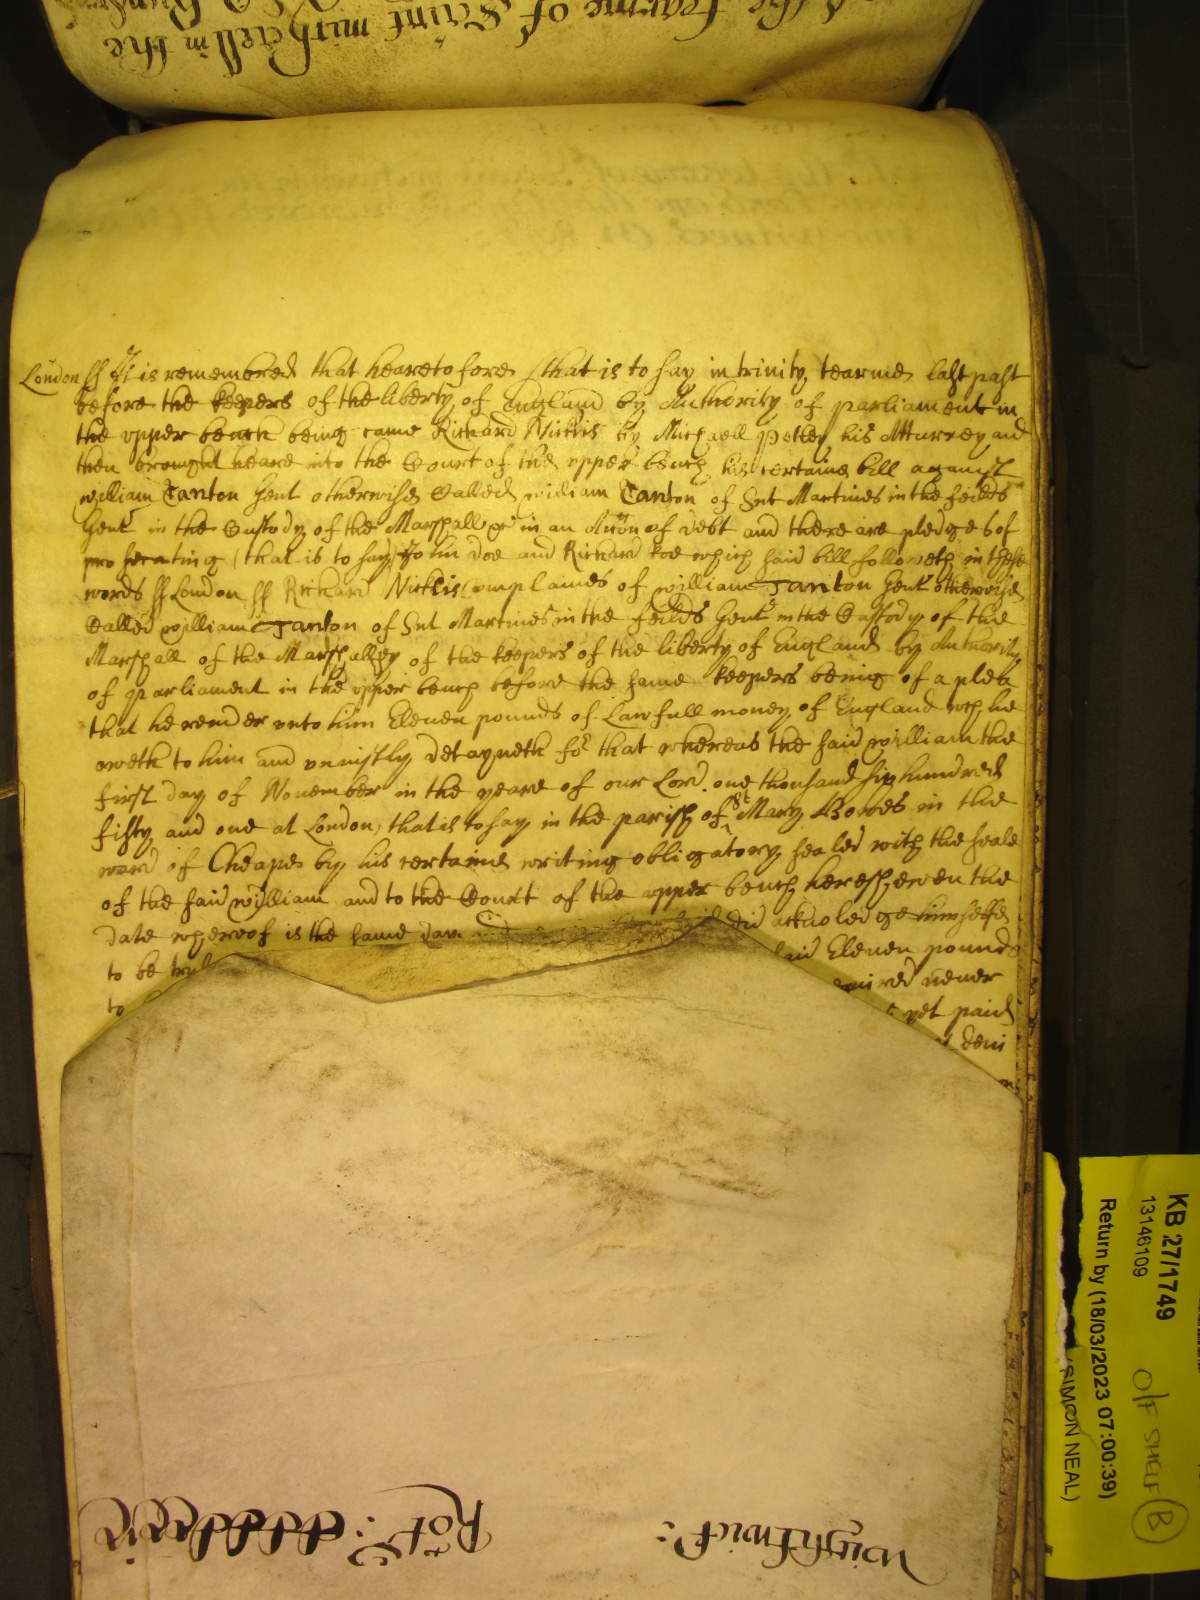 of the tearme of Saint michaell in the
London ss It is remembred that hearetofore (that is to say in trinity tearme last past
before the keepers of the liberty of England by Authority of parliament in
the vpper bench being came Richard Nicklis by Michaell his Atturney and
then brought heare into the Court of the vpper bench his certaine bill against
william Tanton Gent otherwise Called william Tanton of Snt Martines in the feilds
Gent in the Custody of the Marshall &c in an Accon of debt and there are pledges of
prosecuting (that is to say) John doe and Richard Roe which said bill followeth in these
words ss London ss Richard Nicklis Complaines of william Tanton Gent otherwise
Called william Tanton of Snt Martines in the feilds Gent in the Custody of the
Marshall of the Marshallsey of the keepers of the liberty of England by Authority
of parliament in the vpper bench before the same keepers being of a plea
that he render vnto him Eleven pounds of Lawfull money of England wch he
oweth to him and vniustly detayneth for that whereas the said william the
first day of November in the yeare of our Lord one thousand six hundred
fifty and one at London, that is to say in the parish of St Mary Bowes in the
ward of Cheape by his certaine writing obligatory sealed with the seale
of the said william and to the Court of the vpper bench here shewen the
date whereof is the same day did acknoledge himselfe
to be said Eleven pounds
to never
yet paid
deni
Wightwick:
Rot:
KB 27/1749
13146109
Return by (18/03/2023 07:00:39)
(SIMON NEAL)
O/F SHELF B